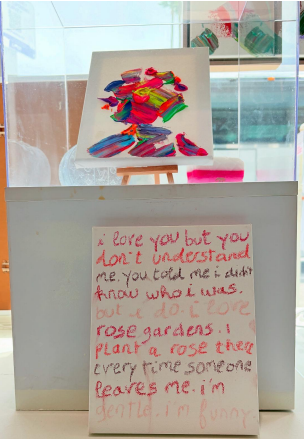 i love you but you
don't understand
me. you told me i didn't
know who i was.
but i do. i love
rose gardens. i
plant a rose there
every time someone
leaves me. i'm
gentle. i'm funny.